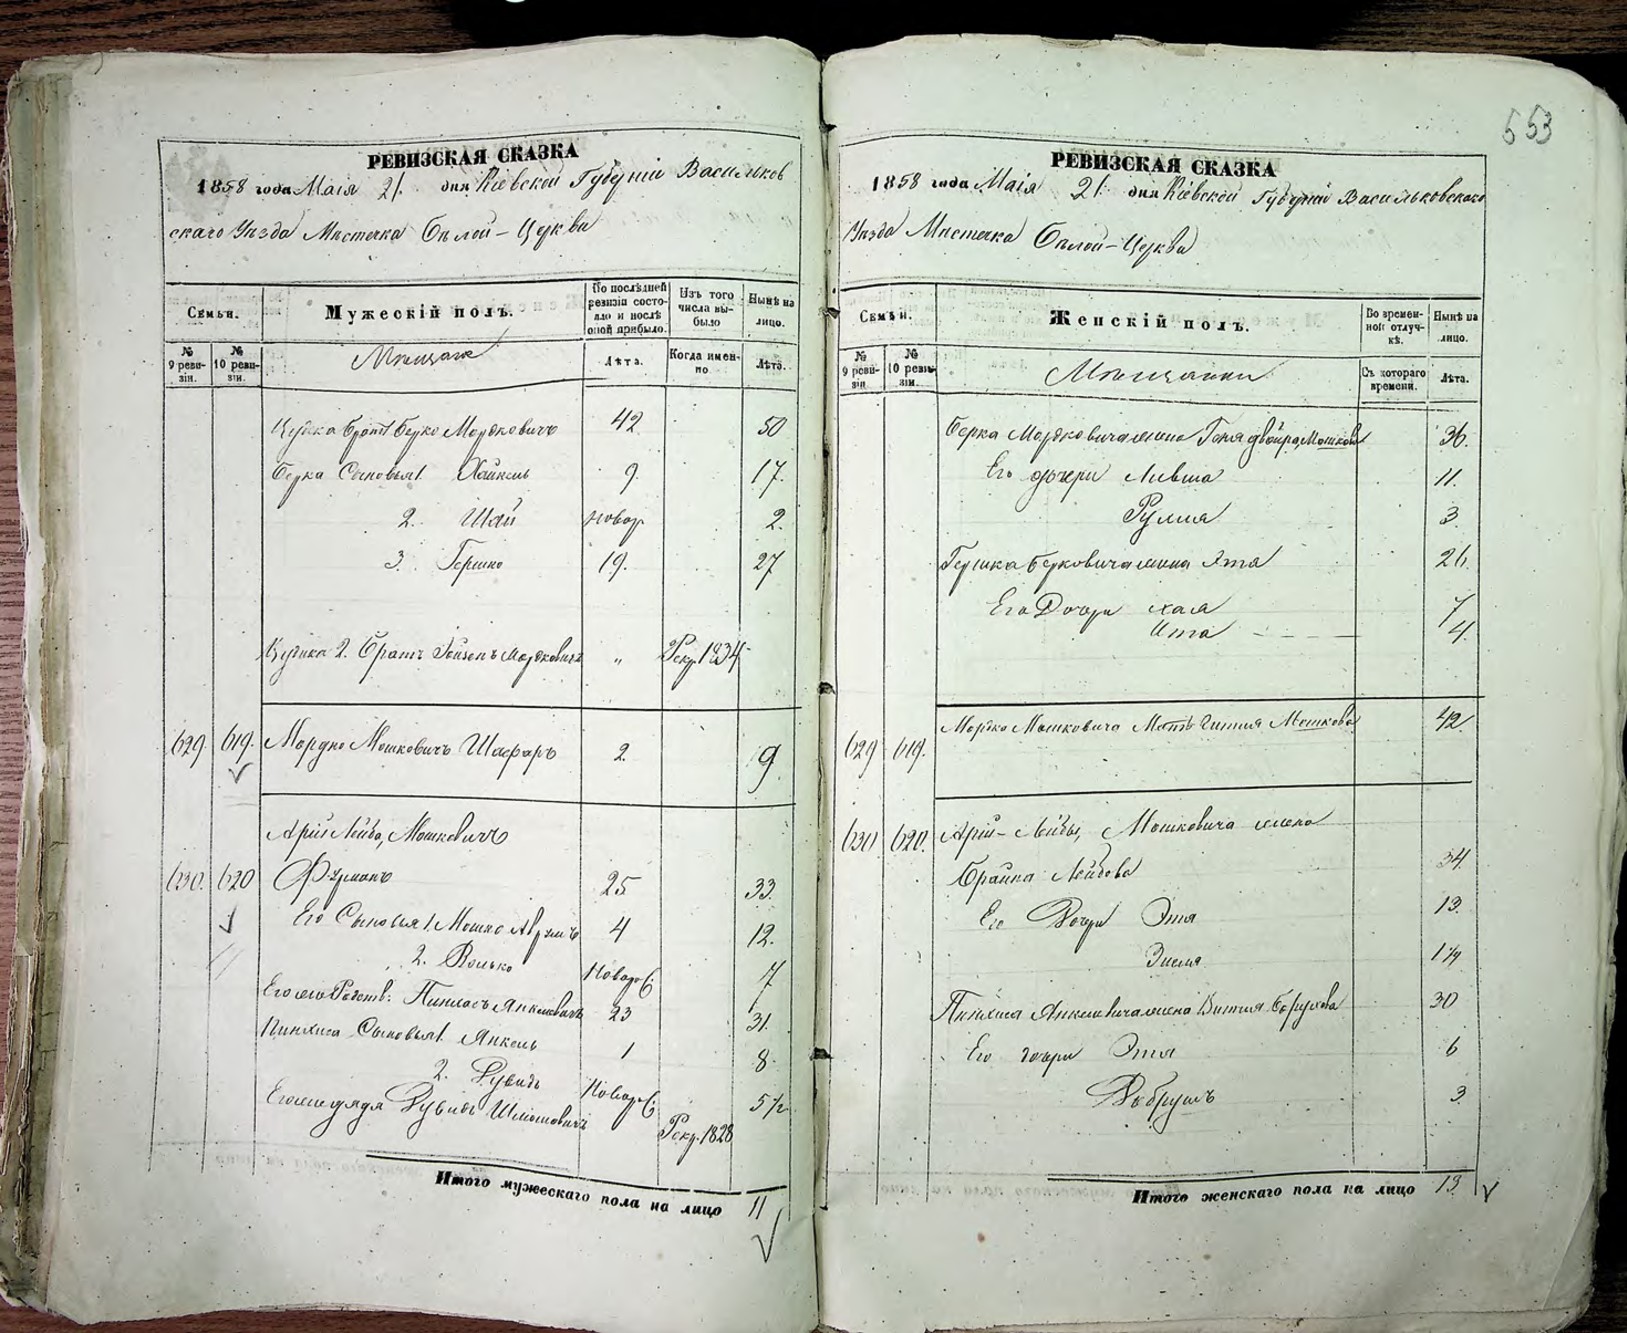 553
РЕВИЗСКАЯ СКАЗКА
1858 года Маія 21. дня Кіевской Губерніи Васильков
скаго Уѣзда Мѣстечка Бѣлой-Церкви
Семьи.
Мужескій полъ.
По послѣдней ревизіи состояло и послѣ оной прибыло.
Изъ того числа выбыло
Нынѣ на лицо.
№ 9 ревизіи.
№ 10 ревизіи.
Мѣщане
Лѣта.
Когда именно.
Лѣта.
Братъ Берко Мордковичъ 42 50
Берка Сыновья 1. Хаимъ 9. 17.
2. Шай новор 2.
3. Гершко 19. 27
2. Братъ Мордковичъ " Рекр. 1834
629 619. Мордко Мошковичъ 2. 9.
Арій Лейба, Мошковичъ
630. 620 Фурманъ 25 33.
Его Сыновья 1. Мошко Аврумъ 4 12.
2. Волько Новор 7
Его же Родств: Пинхасъ Янкелевичъ 23 31.
Пинхаса Сыновья 1. Янкель 1 8.
2. Рувидъ Новор 5½
Его же дядя Рувидъ Шлiомовичъ Рекр. 1828
Итого мужескаго пола на лицо 11
РЕВИЗСКАЯ СКАЗКА
1858 года Маія 21. дня Кіевской Губерніи Васильковскаго
Уѣзда Мѣстечка Бѣлой-Церкви
Семьи.
Женскій полъ.
Во временной отлучкѣ.
Нынѣ на лицо.
№ 9 ревизіи
№ 10 ревизіи.
Мѣщанки
Съ котораго времени.
Лѣта.
Берка Мордковича жена Двойра Мошкова 36.
Его дочери Ливша 11.
Рухля 3.
Гершка Берковича жена Эта 26.
Его Дочери Хая 7
Ита 4.
629 619. Мордко Мошковича Мать Гитля Мошкова 42.
630 620. Арій-Лейбы, Мошковича жена
Брайна Лейбова 34.
Его Дочери Этя 13.
1½
Пинхаса Янкелевича жена Витля Борухова 30
Его дочери Этя 6
Добрушъ 3.
Итого женскаго пола на лицо 13.